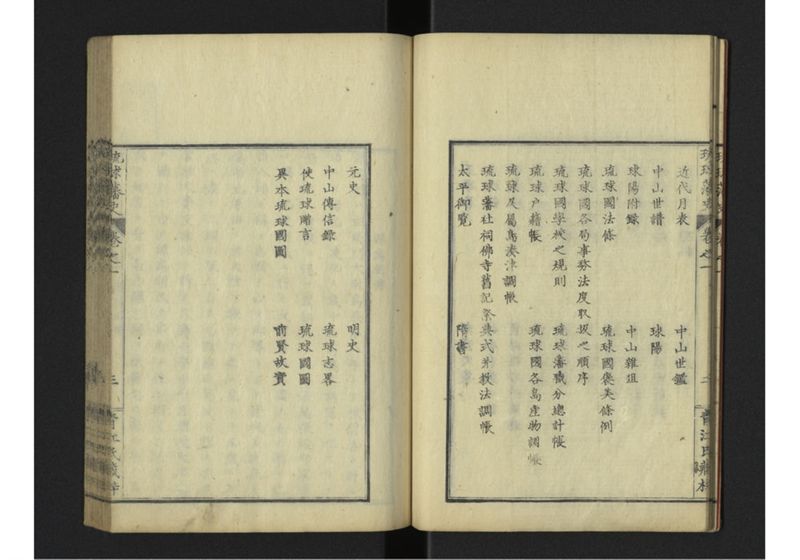 近代月表　中山世鑑
中山世譜　球陽
球陽附録　中山雜俎
琉球國法條　琉球國褒美條例
琉球國各局事務法度取扱之順序
琉球國學校之規則　琉球藩職分總計帳
琉球戸籍帳　琉球國各島産物調帳
琉球及屬島湊津調帳
琉球藩社祠佛寺舊記祭典式并教法調帳
太平御覧　隋書
琉球藩史　卷之一　二
元史　明史
中山傳信錄　琉球志畧
使琉球雜言　琉球國圖
異本琉球國圖　前賢故實
琉球藩史　卷之一　三